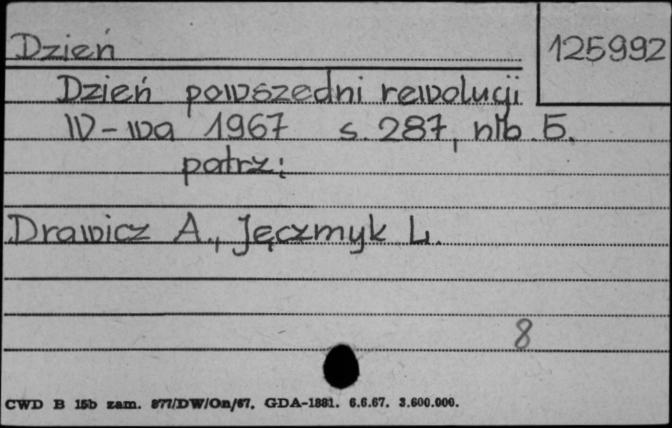 Dzień
125992
Dzień powszedni rewolucji
W-wa 1967 s. 287, nlb 5.
patrz:
Drawicz A., Jęczmyk L.
8
CWD B 15b zam. 877/DW/On/67. GDA-1881. 6.6.67. 3.600.000.